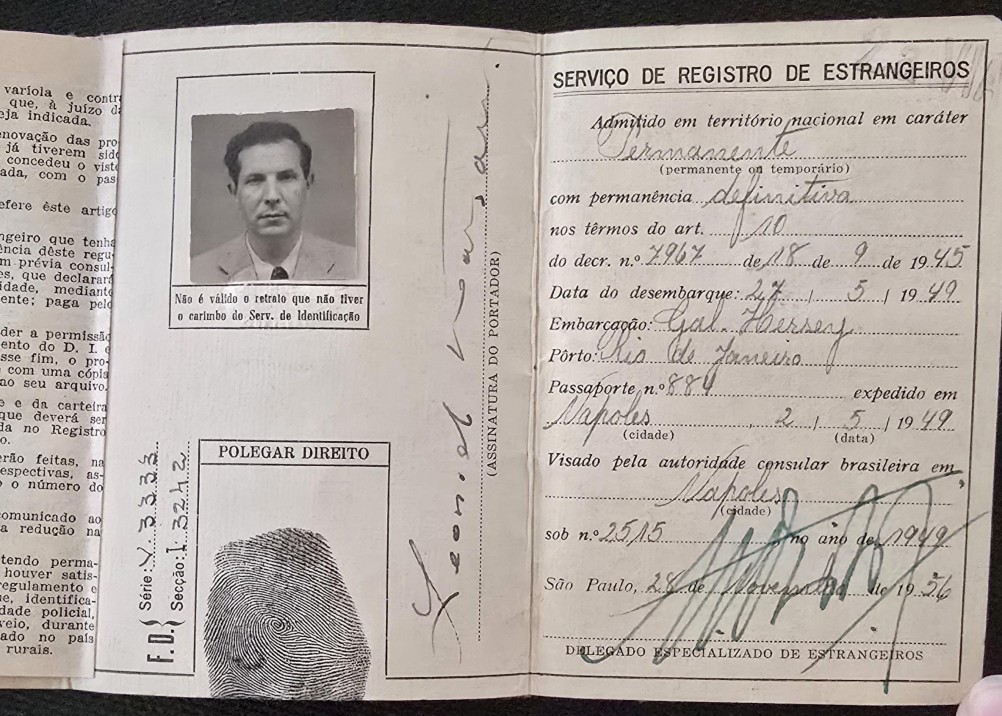 varíola e contr
que, à juízo d
eja indicada.
novação das pro-
já tiverem sido
concedeu o visto
ada, com o pas-
efere êste artigo
ngeiro que tenha
ência dêste regu-
m prévia consul-
es, que declarará
idade, mediante
ente; paga pelo
der a permissão
ento do D. I. e
sse fim, o pro-
com uma cópia
ao seu arquivo.
e e da carteira
que deverá ser
da no Registro
o.
erão feitas, na
espectivas, as-
o o número do
omunicado ao
a redução na
tendo perma-
houver satis-
regulamento e
e, identifica-
dade policial,
veio, durante
ado no país
rurais.
Não é válido o retrato que não tiver
o carimbo do Serv. de Identificação
F. D.
Série: V. 3333
Secção: I 3242
POLEGAR DIREITO
Leonel
(ASSINATURA DO PORTADOR)
SERVIÇO DE REGISTRO DE ESTRANGEIROS
Admitido em território nacional em caráter
Permanente
(permanente ou temporário)
com permanência definitiva
nos têrmos do art. 10
do decr. n.º 7967 de 18 de 9 de 1945
Data do desembarque: 27 / 5 / 1949
Embarcação: Gal. Hersey
Pôrto: Rio de Janeiro
Passaporte n.º 884 expedido em
Napoles, 2 / 5 / 1949
(cidade) (data)
Visado pela autoridade consular brasileira em
Napoles
(cidade)
sob n.º 2515 no ano de 1949
São Paulo, 28 de Novembro de 1956
DELEGADO ESPECIALIZADO DE ESTRANGEIROS